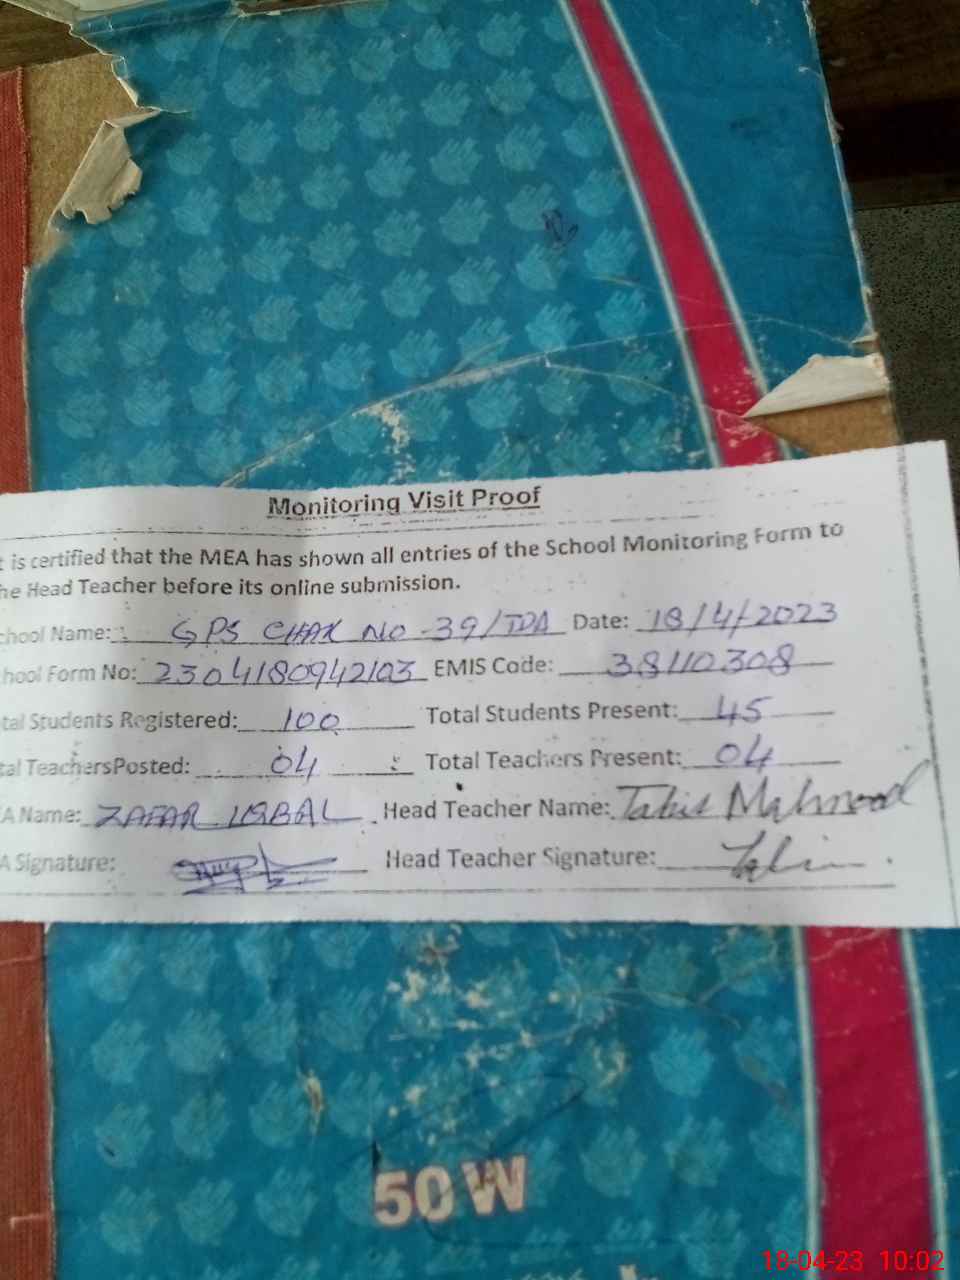 Monitoring Visit Proof
t is certified that the MEA has shown all entries of the School Monitoring Form to
he Head Teacher before its online submission.
chool Name: GPS CHAK NO 39/TDA Date: 18/4/2023
hool Form No: 2304180942103 EMIS Code: 38110308
tal Students Registered: 100 Total Students Present: 45
tal TeachersPosted: 04 Total Teachers Present: 04
A Name: ZAFAR IQBAL Head Teacher Name: Tahir Mahmood
A Signature: Head Teacher Signature:
50 W
18-04-23 10:02